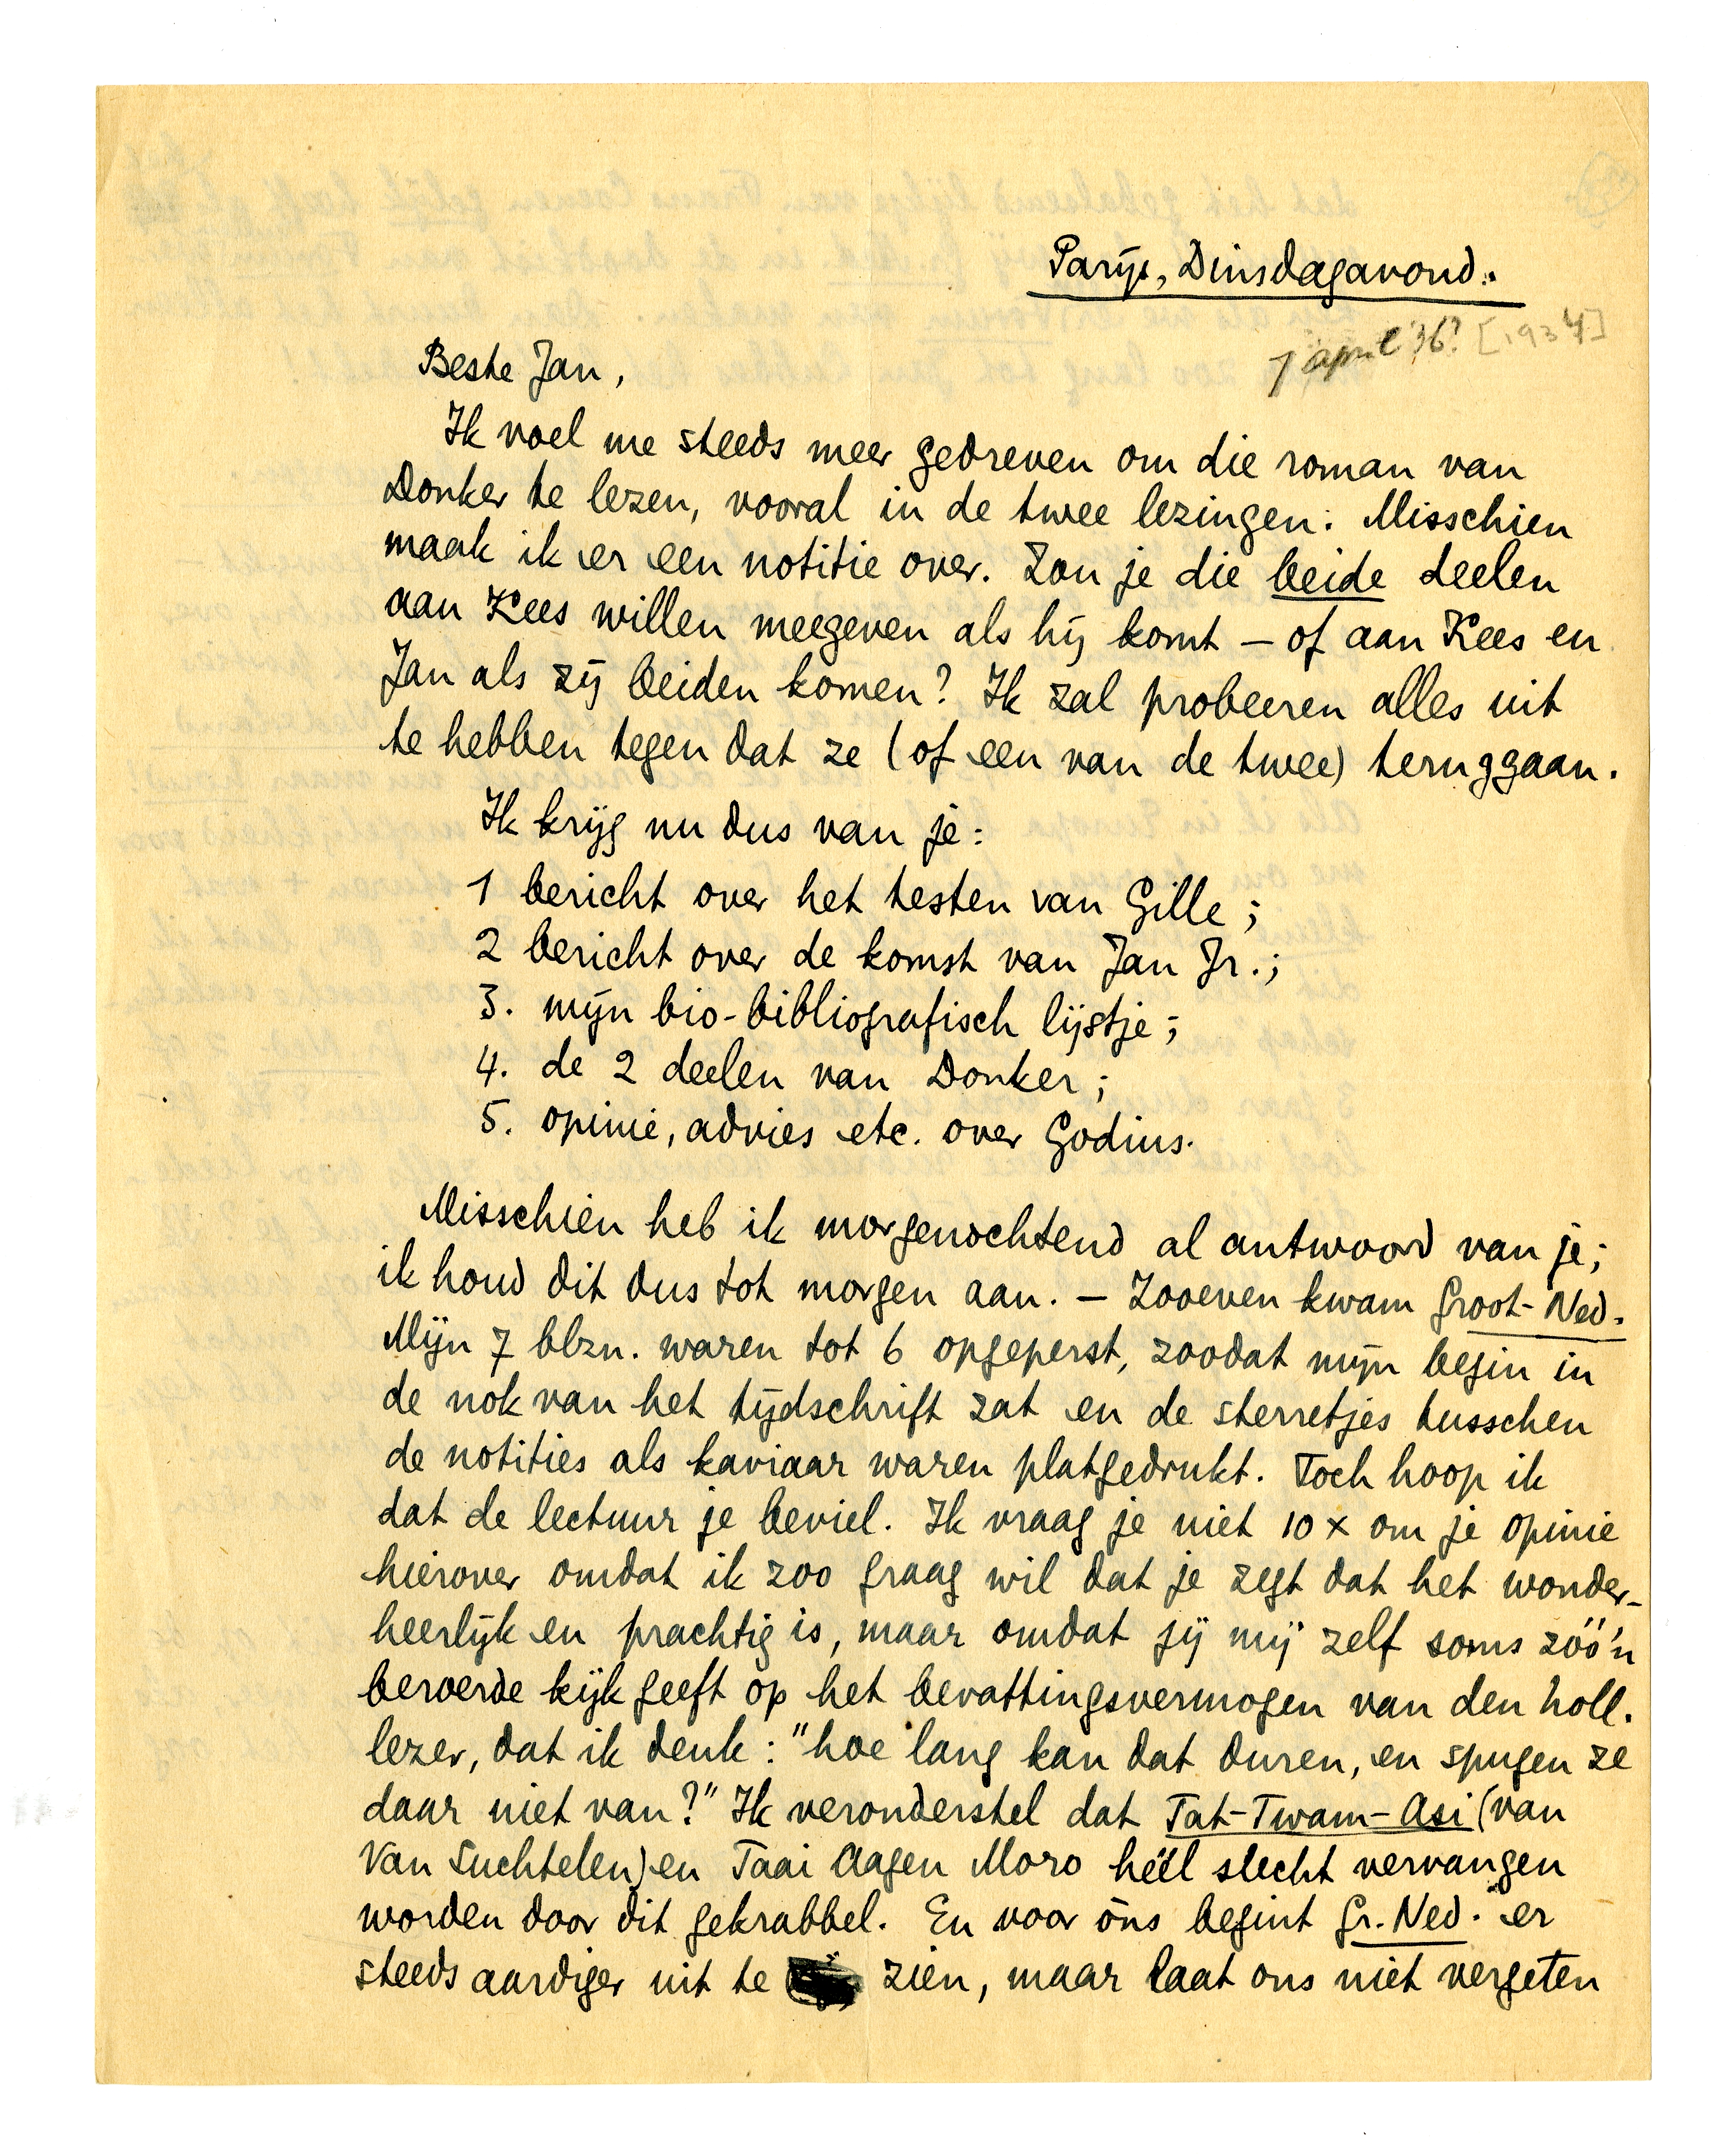 Parijs, Dinsdagavond.
7 april '36? [1934]
Beste Jan,
Ik voel me steeds meer gedreven om die roman van
Donker te lezen, vooral in de twee lezingen. Misschien
maak ik er een notitie over. Zou je die beide deelen
aan Kees willen meegeven als hij komt – of aan Kees en
Jan als zij beiden komen? Ik zal probeeren alles uit
te hebben tegen dat ze (of een van de twee) teruggaan.
Ik krijg nu dus van je:
1 bericht over het testen van Gille;
2 bericht over de komst van Jan Jr.;
3. mijn bio-bibliografisch lijstje;
4. de 2 deelen van Donker;
5. opinie, advies etc. over Godius.
Misschien heb ik morgenochtend al antwoord van je;
ik houd dit dus tot morgen aan. – Zooeven kwam Groot-Ned.
Mijn 7 blzn. waren tot 6 opgeperst, zoodat mijn begin in
de nok van het tijdschrift zat en de sterretjes tusschen
de notities als kaviaar waren platgedrukt. Toch hoop ik
dat de lectuur je beviel. Ik vraag je niet 10 x om je opinie
hierover omdat ik zoo graag wil dat je zegt dat het wonder-
heerlijk en prachtig is, maar omdat jij mij zelf soms zóó'n
beroerde kijk geeft op het bevattingsvermogen van den holl.
lezer, dat ik denk: "hoe lang kan dat duren, en spugen ze
daar niet van?" Ik veronderstel dat Tat-Twam-Asi (van
Van Suchtelen) en Taai Aagen Moro héél slecht vervangen
worden door dit gekrabbel. En voor óns begint Gr. Ned. er
steeds aardiger uit te zien, maar laat ons niet vergeten